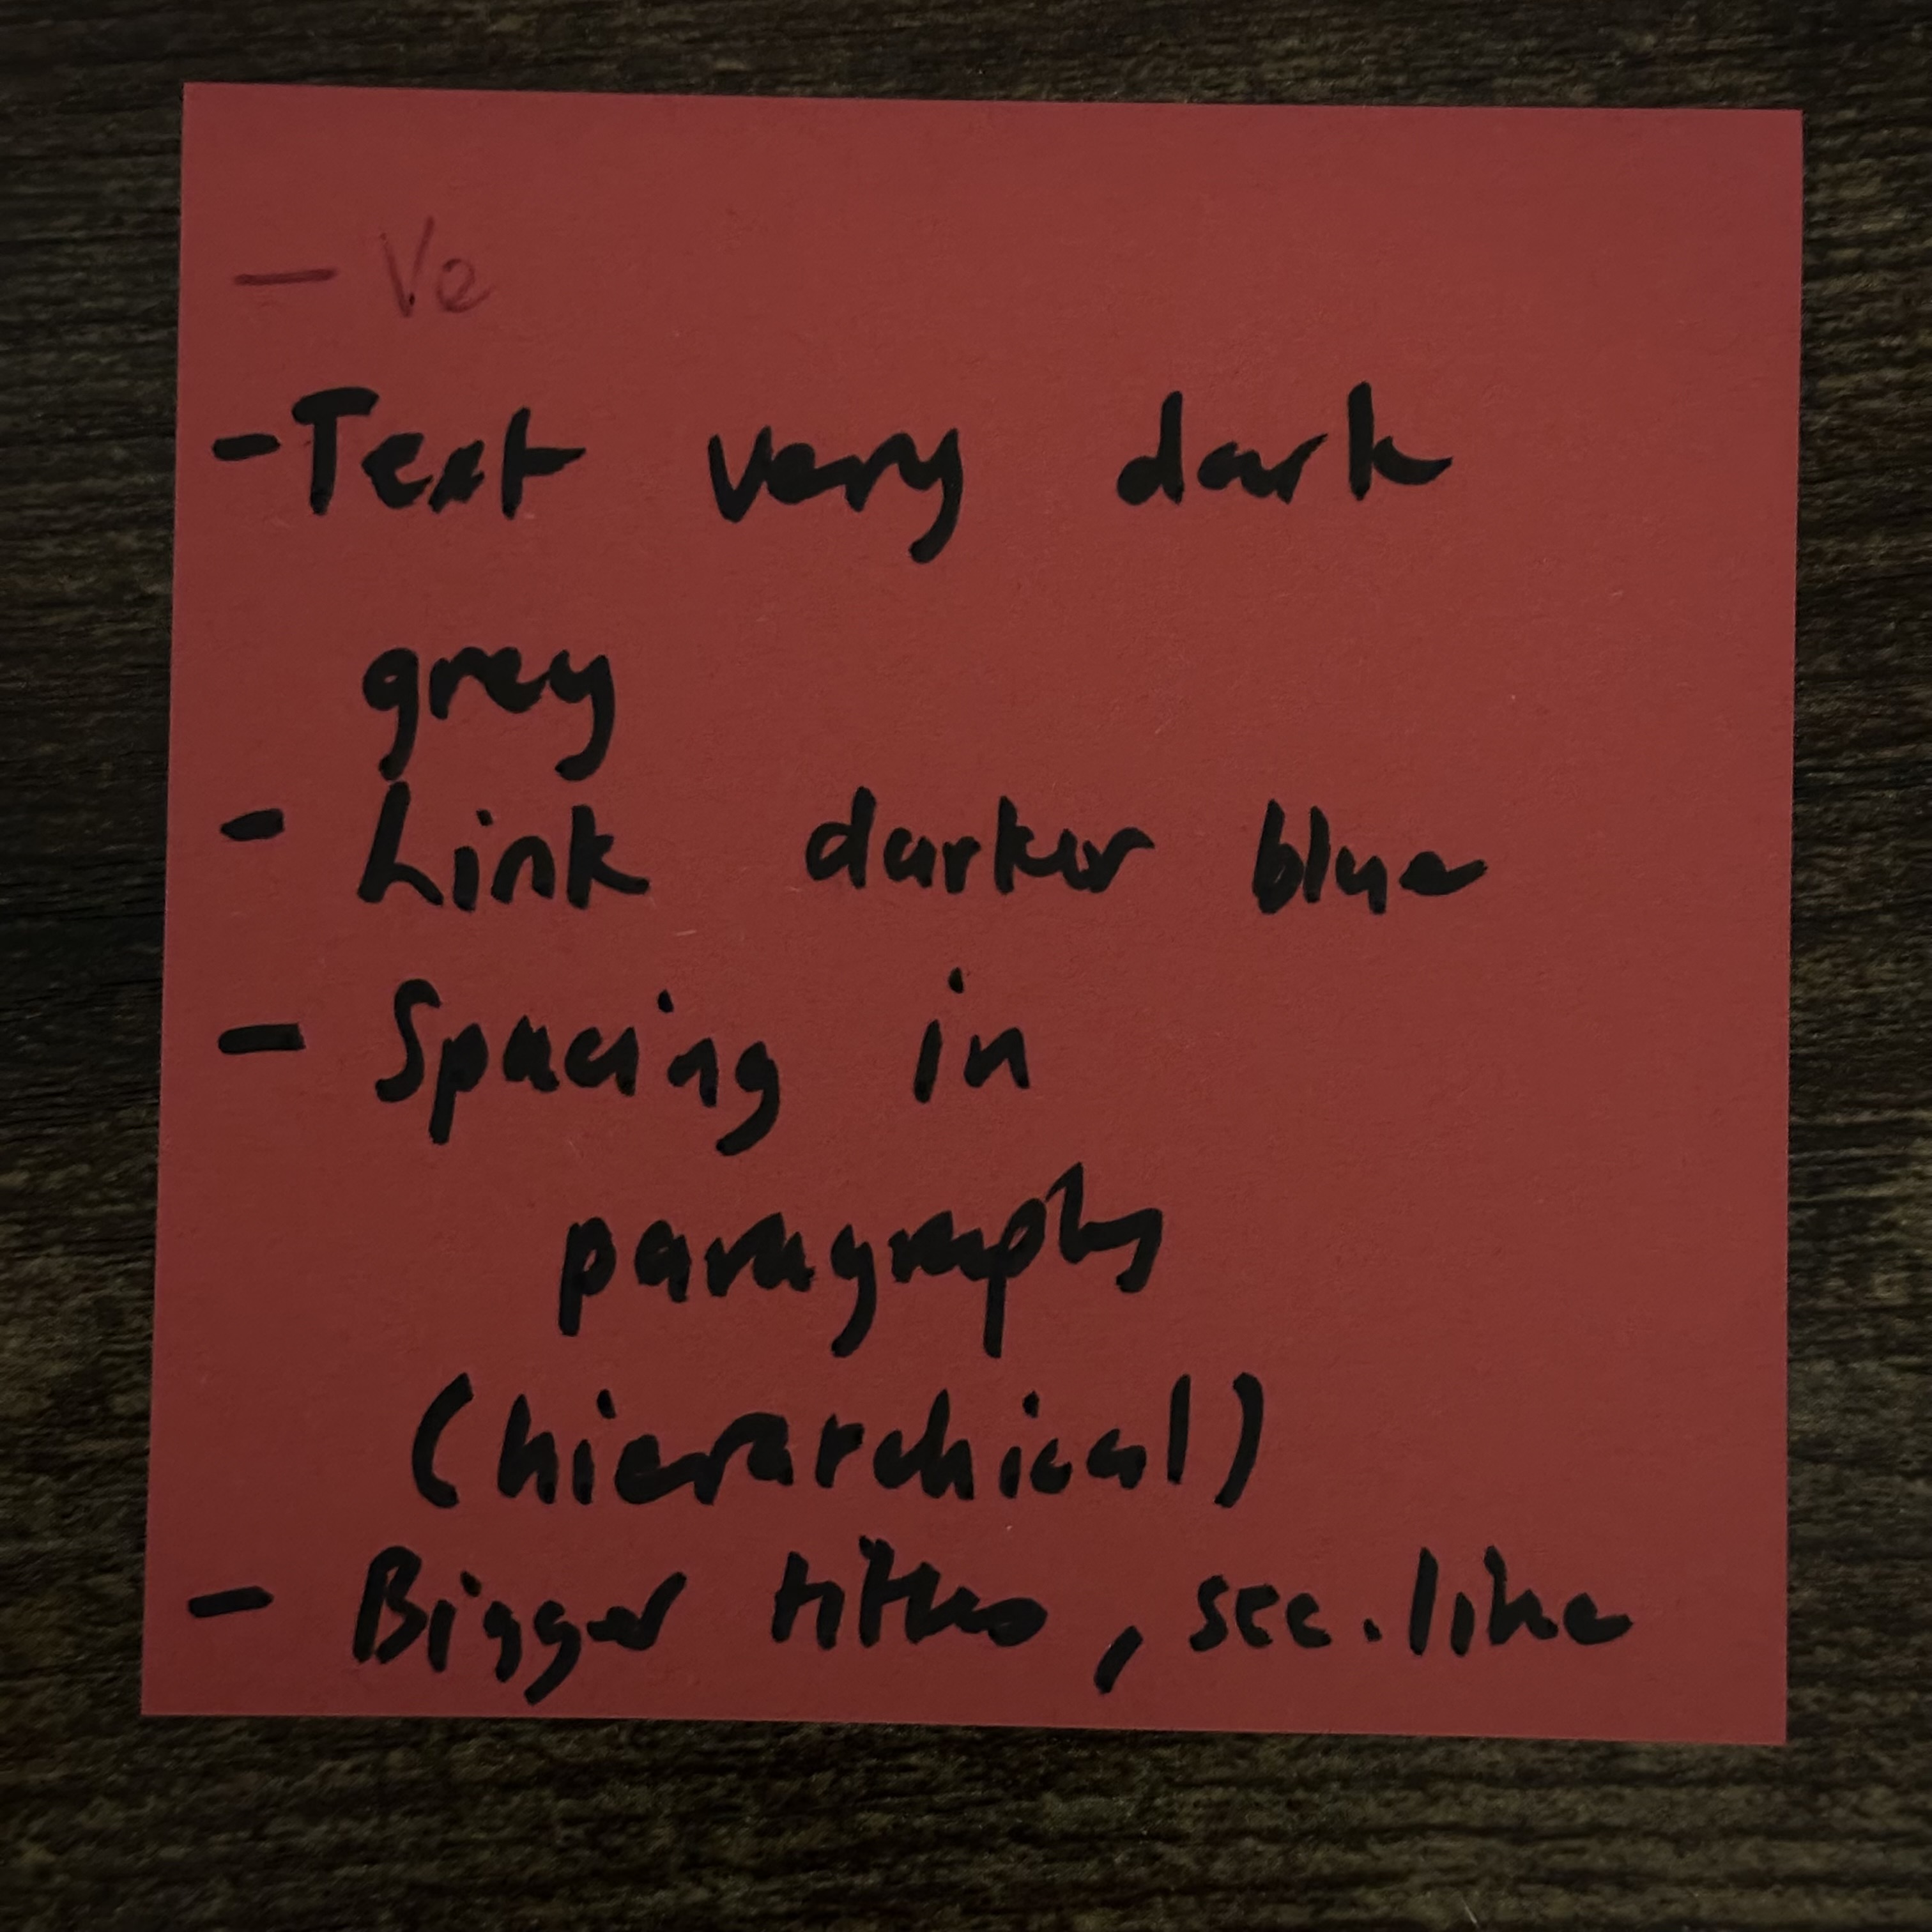 - Ve
- Text very dark
grey
- Link darker blue
- Spacing in
paragraphs
(hierarchical)
- Bigger titles, sec. line